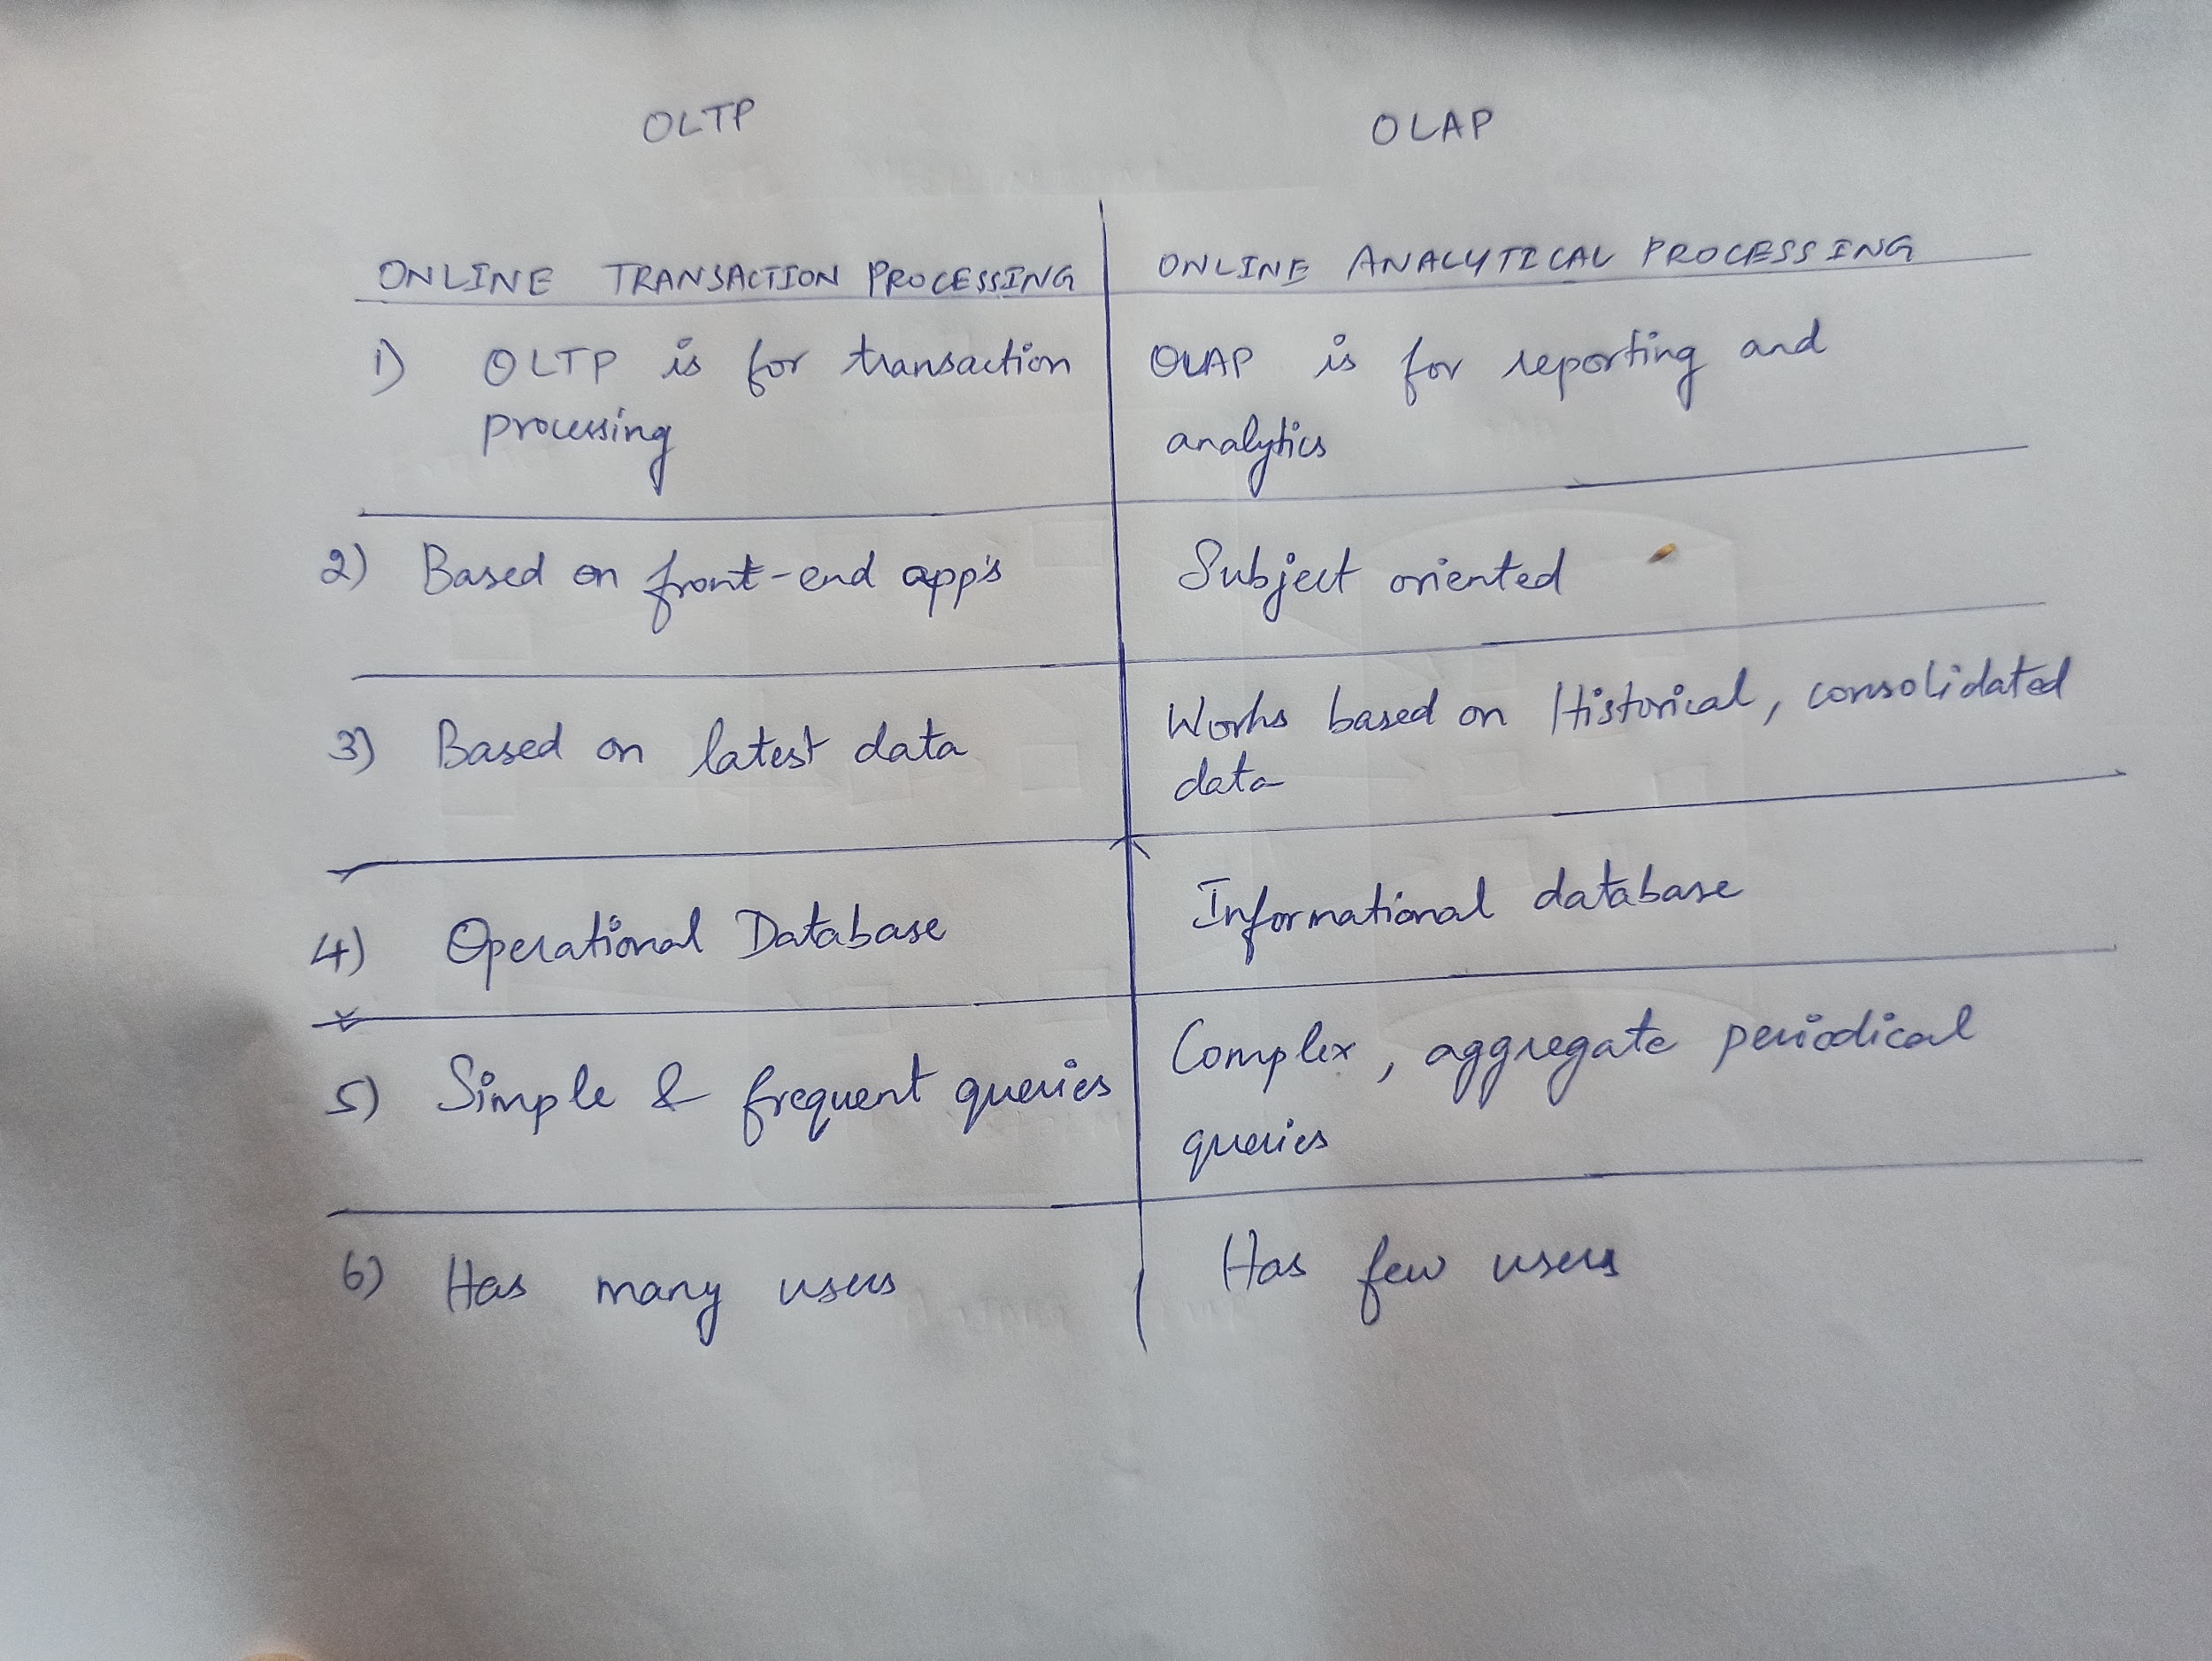 OLTP OLAP
ONLINE TRANSACTION PROCESSING ONLINE ANALYTICAL PROCESSING
1) OLTP is for transaction OLAP is for reporting and
processing analytics
2) Based on front-end app's Subject oriented
3) Based on latest data Works based on Historical, consolidated
data
4) Operational Database Informational database
5) Simple & frequent queries Complex, aggregate periodical
queries
6) Has many users Has few users